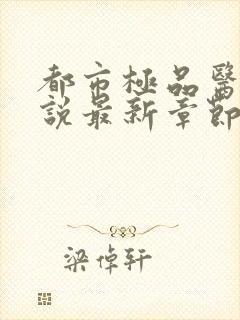 都市極品醫
說最新章節
梁倬軒